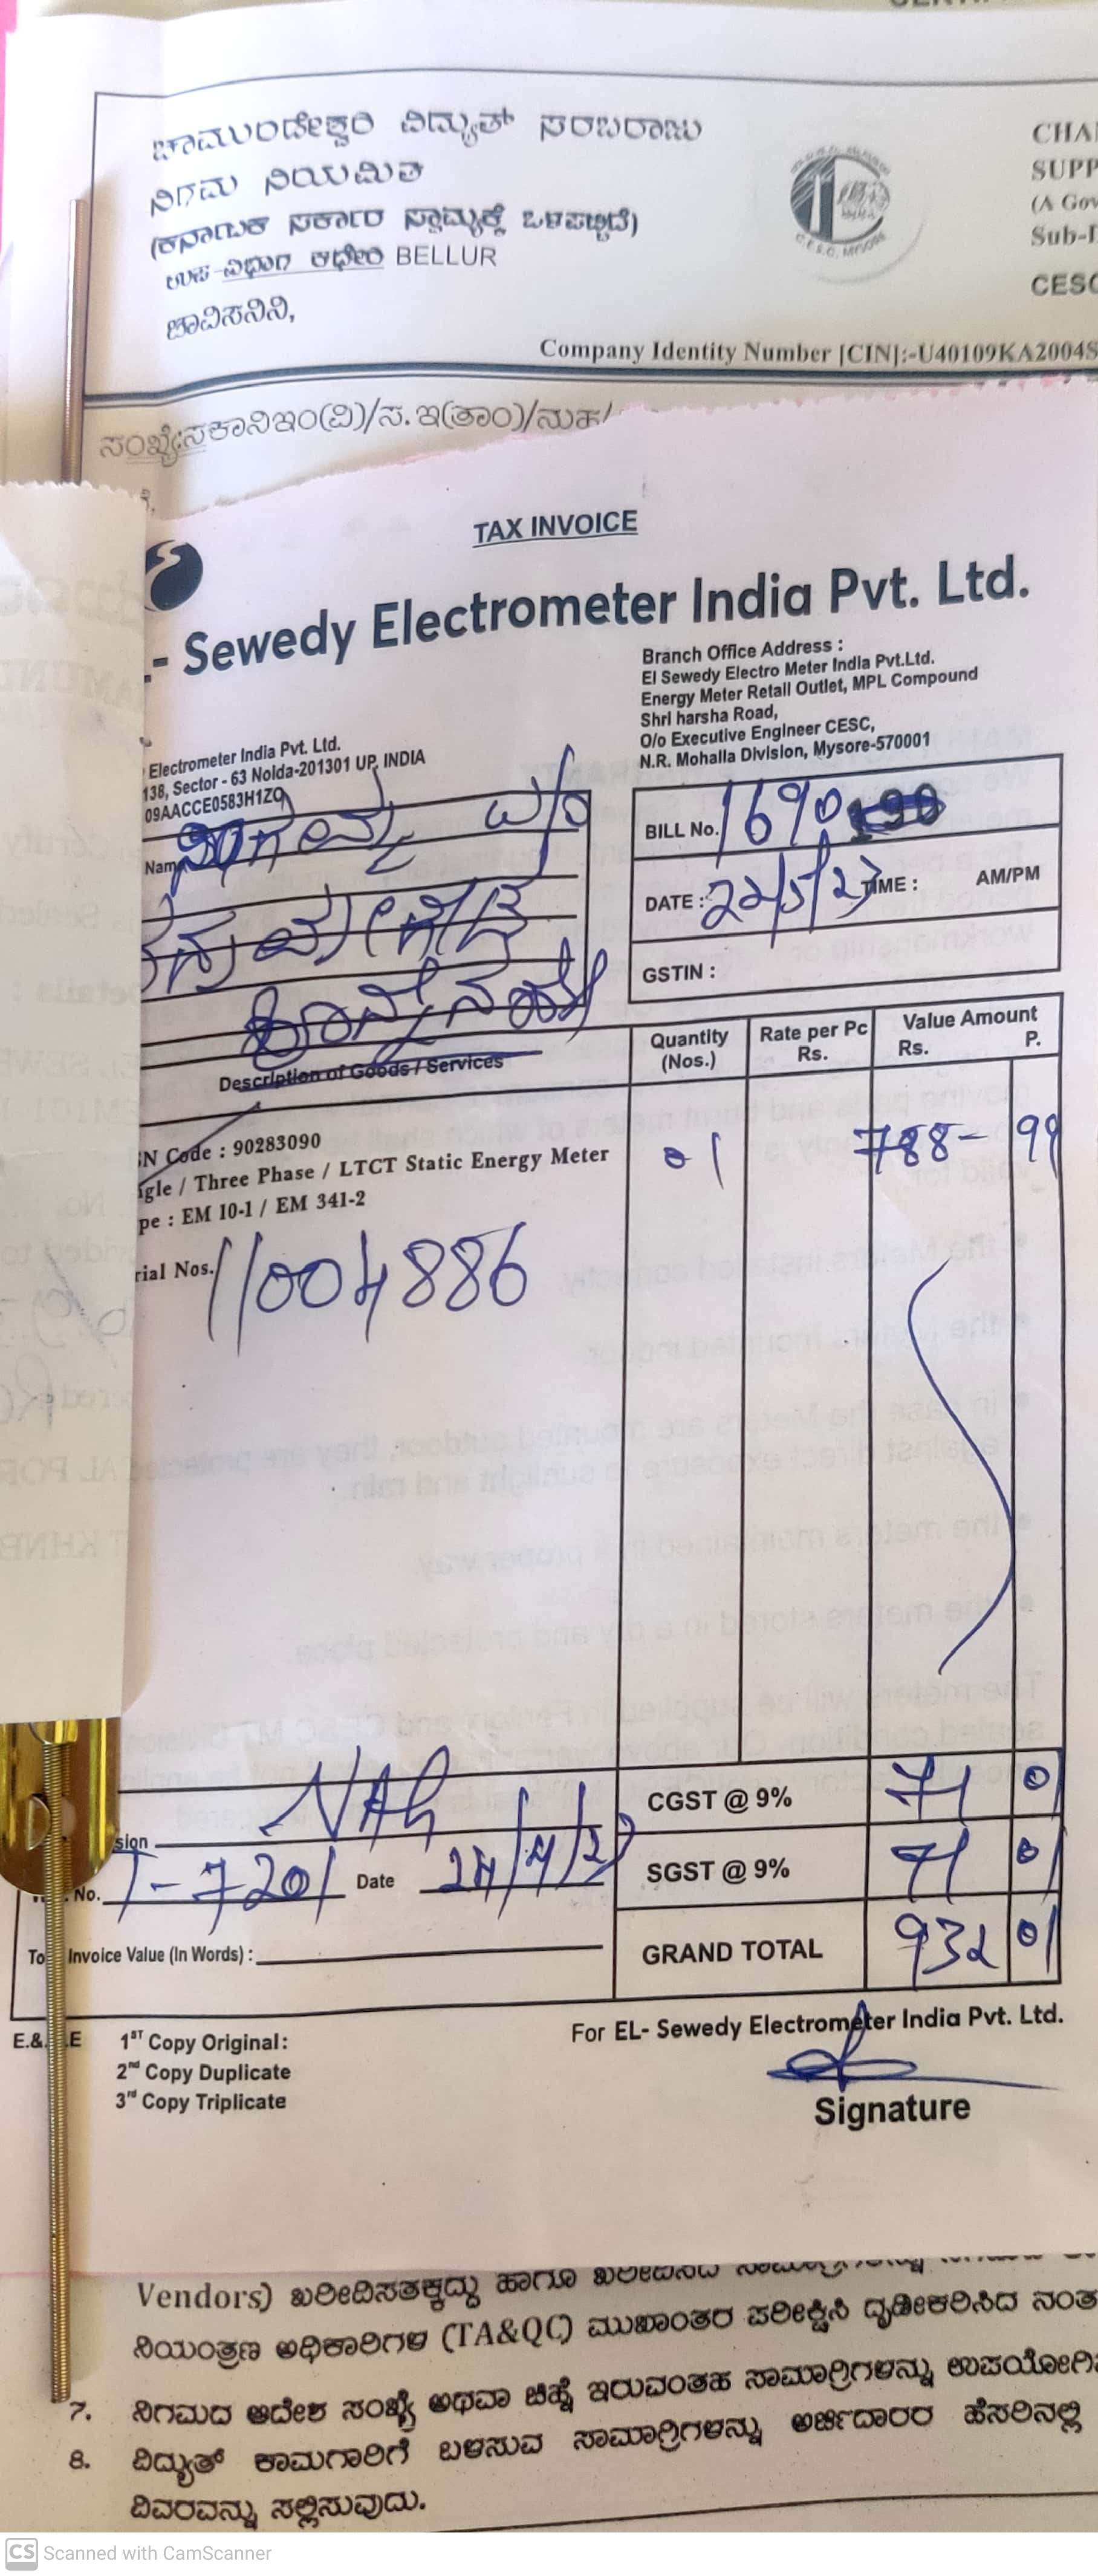 ಚಾಮುಂಡೇಶ್ವರಿ ವಿದ್ಯುತ್ ಸರಬರಾಜು
ನಿಗಮ ನಿಯಮಿತ
(ಕರ್ನಾಟಕ ಸರ್ಕಾರ ಸ್ವಾಮ್ಯಕ್ಕೆ ಒಳಪಟ್ಟಿದೆ)
ಉಪ-ವಿಭಾಗ ಕಛೇರಿ BELLUR
ಚಾವಿಸನಿನಿ,
C.E.S.C. MYSORE
CHA
SUPP
(A Gov
Sub-
CESC
Company Identity Number [CIN]:-U40109KA2004S
ಸಂಖ್ಯೆ:ಸಕಾನಿಇಂ(ವಿ)/ಸ.ಇ(ತಾಂ)/ನುಹ/
TAX INVOICE
- Sewedy Electrometer India Pvt. Ltd.
Branch Office Address :
El Sewedy Electro Meter India Pvt.Ltd.
Energy Meter Retail Outlet, MPL Compound
Shri harsha Road,
O/o Executive Engineer CESC,
N.R. Mohalla Division, Mysore-570001
Electrometer India Pvt. Ltd.
138, Sector - 63 Noida-201301 UP, INDIA
09AACCE0583H1ZQ
Name
BILL No. 1690
DATE : 22/5/23 TIME : AM/PM
GSTIN :
Description of Goods / Services
Quantity (Nos.)
Rate per Pc Rs.
Value Amount
Rs. P.
N Code : 90283090
gle / Three Phase / LTCT Static Energy Meter
pe : EM 10-1 / EM 341-2
01 788-99
rial Nos. 11004886
CGST @ 9% 71 01
sion
SGST @ 9% 71 01
No. 1-7201 Date
To Invoice Value (In Words) :
GRAND TOTAL 932 01
E.& .E
1ST Copy Original:
2nd Copy Duplicate
3rd Copy Triplicate
For EL- Sewedy Electrometer India Pvt. Ltd.
Signature
Vendors) ಖರೀದಿಸತಕ್ಕದ್ದು ಹಾಗೂ ಖರೀದಿಸಿದ
ನಿಯಂತ್ರಣ ಅಧಿಕಾರಿಗಳ (TA&QC) ಮುಖಾಂತರ ಪರೀಕ್ಷಿಸಿ ದೃಢೀಕರಿಸಿದ ನಂತ
7. ನಿಗಮದ ಆದೇಶ ಸಂಖ್ಯೆ ಅಥವಾ ಚಿಹ್ನೆ ಇರುವಂತಹ ಸಾಮಾಗ್ರಿಗಳನ್ನು ಉಪಯೋಗಿ
8. ವಿದ್ಯುತ್ ಕಾಮಗಾರಿಗೆ ಬಳಸುವ ಸಾಮಾಗ್ರಿಗಳನ್ನು ಅರ್ಜಿದಾರರ ಹೆಸರಿನಲ್ಲಿ
ವಿವರವನ್ನು ಸಲ್ಲಿಸುವುದು.
CS Scanned with CamScanner